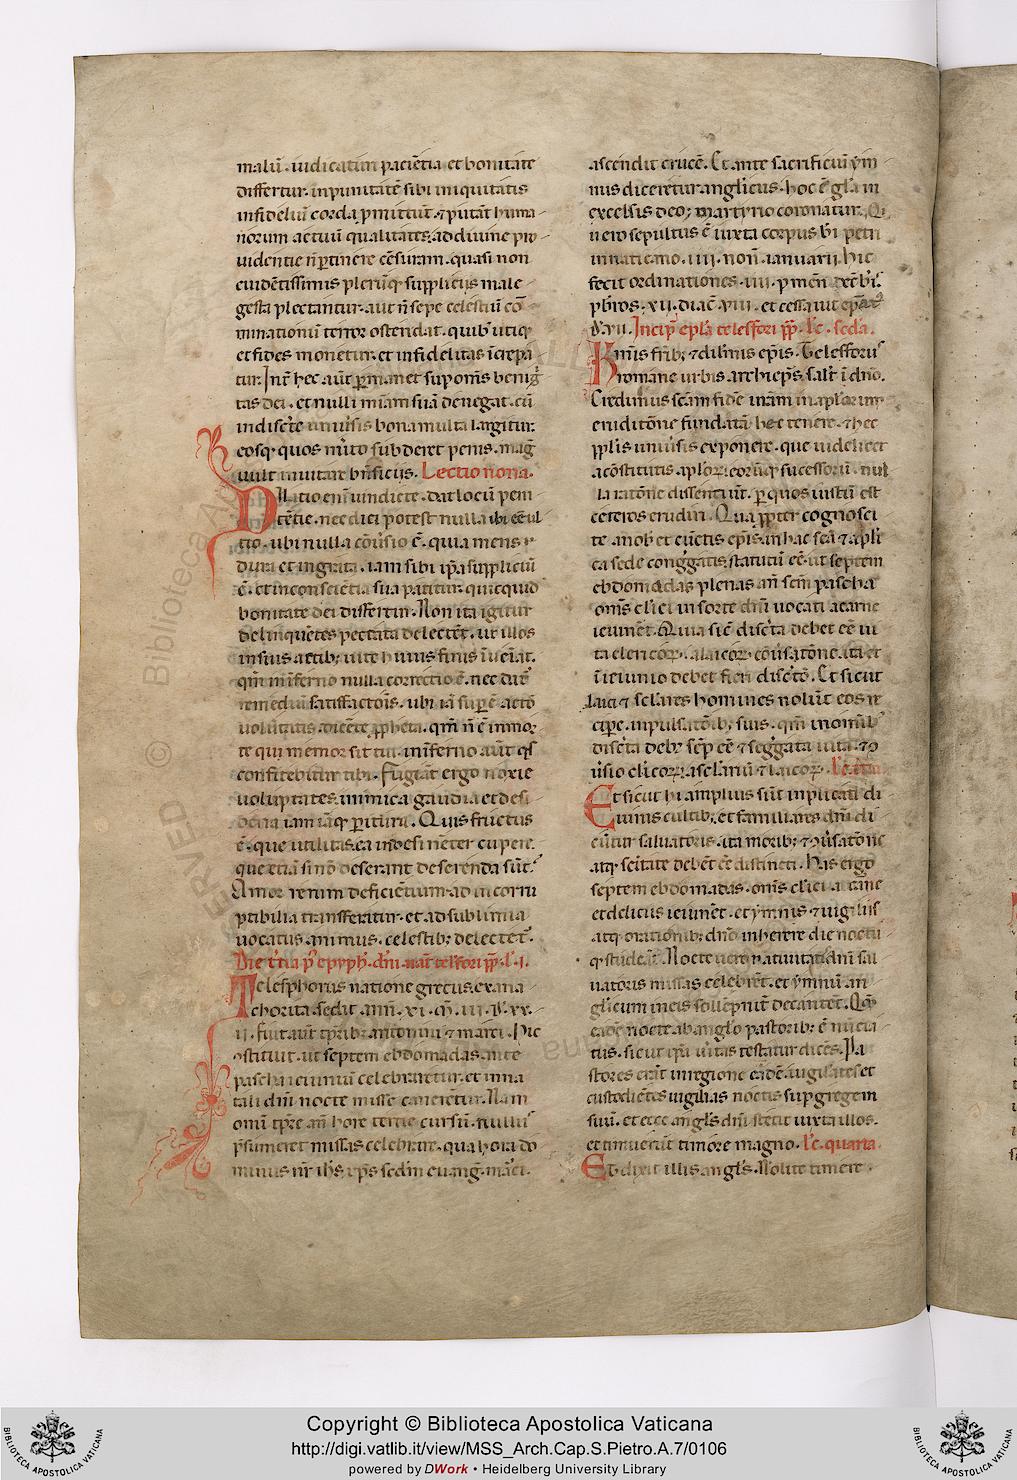 malū. uidicatim paciētia et bonitate
differtur. inpunitatē sibi iniquitatis
infideliū corda p̄mittūt. ⁊ putāt huma
norum actuū qualitates. ad diuine pro
uidentie n̄ ptinere cēsuram. quasi non
euidētissimis plerūq; suppliciis male
gesta plectantur. aut n̄ sepe celestiū cō
minationū terror ostendat. quib' utiq;
et fides monetur. et infidelitas īcrepa
tur. Int̄ hec aūt pmanet sup om̄s benig
tas dei. et nulli mīam suā denegat. cū
indiscr̄te uniūsis bona multa largitur.
eosq; quos mīto subderet penis. maḡ
uult inuitare bn̄ficiis. Lectio nona.
Dilatio enī uindicte. dat locū peni
tētie. nec dici potest nulla ibi eē ul
tio. ubi nulla cōūsio ē. quia mens
dura et ingrata. iam sibi ip̄a suppliciū
ē. et in consciētia sua patitur. quicquid
bonitate dei differtur. Non ita igitur
delinquētes peccata delectēt. ut illos
in suis actib; uite huius finis īueīat.
qm̄ in īferno nulla correctio ē. nec dat
remediū satisfactōis. ubi iā sup ē actō
uolūtatis. dicēte ppheta. qm̄ n̄ ē in mor
te qui memor sit tui. in īferno aūt qs
confitebitur tibi. Fugiāt ergo noxie
uoluptates. inimica gaudia et desi
deria iam iāq; peritura. Quis fructus
ē. que utilitas. ea indesinēter cupere.
que etiā si nō deserant deserenda sūt.
Amor rerum deficiētium. ad incorru
ptibilia transferatur. et ad sublimia
uocatus animus. celestib; delectet̄.
Die t̄tia p' epyph. dn̄i. nat̄ telesfori pp. l' .i.
Telesphorus natione grecus. ex ana
chorita. sedit ann̄. xi. m̄. iii. d. xx.
ii. fuit aūt tp̄rib; antonini ⁊ marci. Hic
ꝯstituit. ut septem ebdomadas. ante
pascha ieiuniū celebraretur. et in na
tali dn̄i nocte misse canerētur. Nam
omī tp̄re an̄ hore tertie cursū. nullus
p̄sumeret missas celebrare. qua hora do
minus nr̄ ih̄s xp̄s sedm euang. marci.
ascendit crucē. Et ante sacrificiū ym
nus diceretur anglicus. hoc ē gl̄a in
excelsis deo; martyrio coronatur. Q
uero sepultus ē iuxta corpus bī petri
in uaticano. iiii. non̄. ianuarii. hic
fecit ordinationes. iiii. p men̄. decēbr̄.
pb̄ros. xii. diac̄. viii. et cessauit ep̄at'
d. vii. Incip̄ epl̄a telesfori pp. l'c. sc̄da.
Omīs frīb; ⁊ dilc̄mis ep̄is. Telesforus
romane urbis archiep̄s salt̄ ī dn̄o.
Credimus sc̄am fidē uram in apl̄orum
eruditōne fundatā hec tenere. ⁊ hec
pplis uniūsis exponere. que uidelicet
a cōstitutis apl̄or. eorūq; sucessorū. nul
la ratōne dissentiūt. p quos iustū est
ceteros erudiri. Qua ppter cognosci
te a nob̄ et cūctis ep̄is. in hac sc̄a ⁊ apl̄i
ca sede congg̃atis. statutū eē. ut septem
ebdomadas plenas an̄ sc̄m pascha
om̄s clīci in sorte dn̄i uocati a carne
ieiunēt. Quia sic discr̄ta debet eē ui
ta clericor. a laicor. cōūsatōne. ita et
ī ieiunio debet fieri discrētō. Et sicut
laici ⁊ sclares homines nolūt eos re
cipe. in pulsatōib; suis. qm̄ in omīb'
discr̄ta deb; sēp eē ⁊ seggata uita ⁊ ꝯ
ūsio clīcor; a sclariū ⁊ laicor. l'c. t̄tia
Et sicut hi amplius sūt inplicati di
uinis cultib; et familiares dn̄i di
cūtur saluatoris. ita morib; ⁊ ꝯūsatōne
atq; scītate debēt eē distincti. Has ergo
septem ebdomadas. om̄s clīci a carne
et deliciis ieiunēt. et ymnis ⁊ uigiliis
atq; orationib; dn̄o inherere die noctu
q; studeāt. Nocte uero natiuitatis dn̄i sal
uatoris missas celebrēt. et ymnū an
glicum in eis sollēpnit̄ decantēt. Qm̄
eadē nocte ab anglo pastorib; ē nūcia
tus. sicut ip̄a uītas testatur dicēs. Pa
stores erāt in regione eādē uigilātes et
custodiētes uigilias noctis sup gregem
suū. et ecce angls dn̄i stetit iuxta illos.
et timuerūt timore magno. l'c. quarta.
Et dixit illis angls. Nolite timere.
Copyright © Biblioteca Apostolica Vaticana
http://digi.vatlib.it/view/MSS_Arch.Cap.S.Pietro.A.7/0106
powered by DWork • Heidelberg University Library
BIBLIOTECA APOSTOLICA VATICANA
BIBLIOTECA APOSTOLICA VATICANA